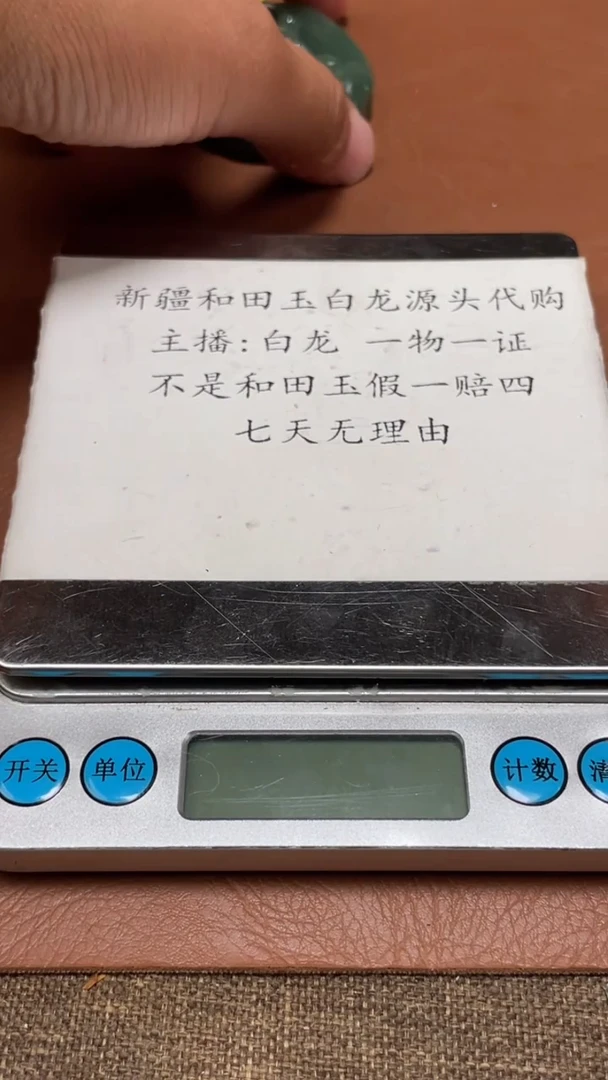 新疆和田玉白龙源头代购
主播:白龙 一物一证
不是和田玉假一赔四
七天无理由
开关 单位 计数 清